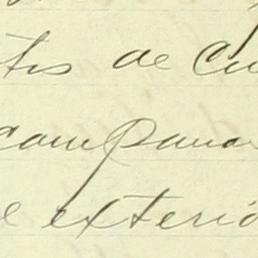 tes de cu
campana
e exterio